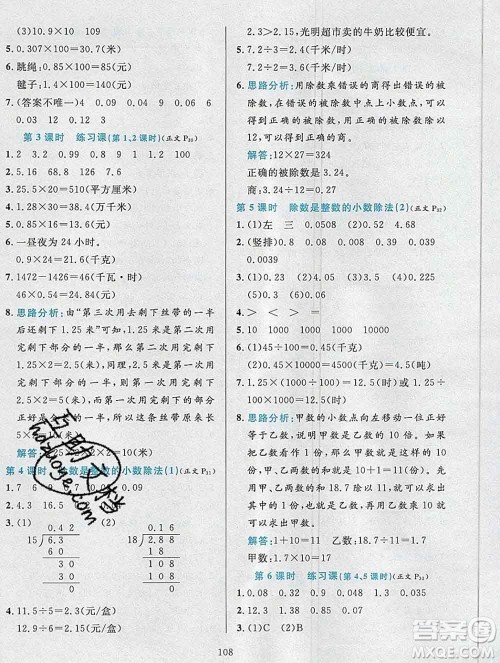 (3)10.9×10　109
5. 0.307×100=30.7(米)
6. 跳绳:0.85×100=85(元)
毽子:0.4×100=40(元)
7. (答案不唯一)4　0.09　4　9　0.04
0.03　0.08　5
第3课时　练习课(第1、2课时)
1. 2.9　3.13　2.7　1.6　8
2. 5.8　16.7　0.29
3. 25.5×20=510(平方厘米)
4. 20.9×20=418(万千米)
6. 一昼夜为 24 小时。
0.9×24=21.6(千克)
7. 1472-1426=46(千瓦·时)
46×0.54=24.84(元)
8. 思路分析:由“第三次用去剩下丝带的一半
后还剩下 1.25 米”可知,1.25 米是第二次用
完剩下部分的一半,那么第二次用完剩下部
分的长度是 1.25×2=2.5(米),第二次用完
剩下的 2.5 米正好是第一次用完剩下部分的
一半,那么第一次用完剩下部分的长度是
2.5×2=5(米),第一次用完剩下的 5 米
正好是原来的一半,所以这条丝带原来长
5×2=10(米)。
解答:1.25×2×2×2=10(米)
第4课时　除数是整数的小数除法(1)(正文P31)
1. 7　6　9　7　7　4　8
3. (1) 0.42　(2) 0.16
15)6.30　18)2.88
60　18
30　108
30　108
0　0
4. 11.5÷5=2.3(元/盒)
12.9÷6=2.15(元/盒)
2.3>2.15,光明超市卖的牛奶比较便宜。
5. 7.2÷3=2.4(千米/时)
7.2÷2=3.6(千米/时)
6. 思路分析:用除数乘错误的商得出错误的被
除数,在错误的被除数中点上小数点,被除
数有两位小数,从右边起数两位点上小数点,
就可以得到正确的被除数,再计算就可以得
到正确的商了。
解答:12×27=324
正确的被除数是 3.24。
商:3.24÷12=0.27
第5课时　除数是整数的小数除法(2)(正文P32)
1. (1)左　三　(2)0.048　0.19
2. (竖排)0.08　0.18　0.03　0.08　0.039
3. (1)0.3　0.15　(2)0.02　0.05
4. >　<　=　>
5. 10　1000　10　1000　1000
6. (1)0.18　(2)0.45
7. 1.25×10000÷1000=12.5(吨)
1.25÷10=0.125(元)
8. 思路分析:甲数的小数点向左移动一位正好
等于乙数,说明甲数是乙数的 10 倍,把乙数
看作 1 份,甲数就是这样的 10 份,甲、乙两数
的和就是这样的 10+1=11(份),所以
18.04÷11=1.64,即乙数为 1.64,甲数为
1.64×10=16.4。
解答:10+1=11　乙数:18.04÷11=1.64
甲数:1.64×10=16.4
第6课时　练习课(第4、5课时)(正文P33)
1. 2.7　1.2　0.3　0.9　0.8　0.05
3. (1)C　(2)B
108